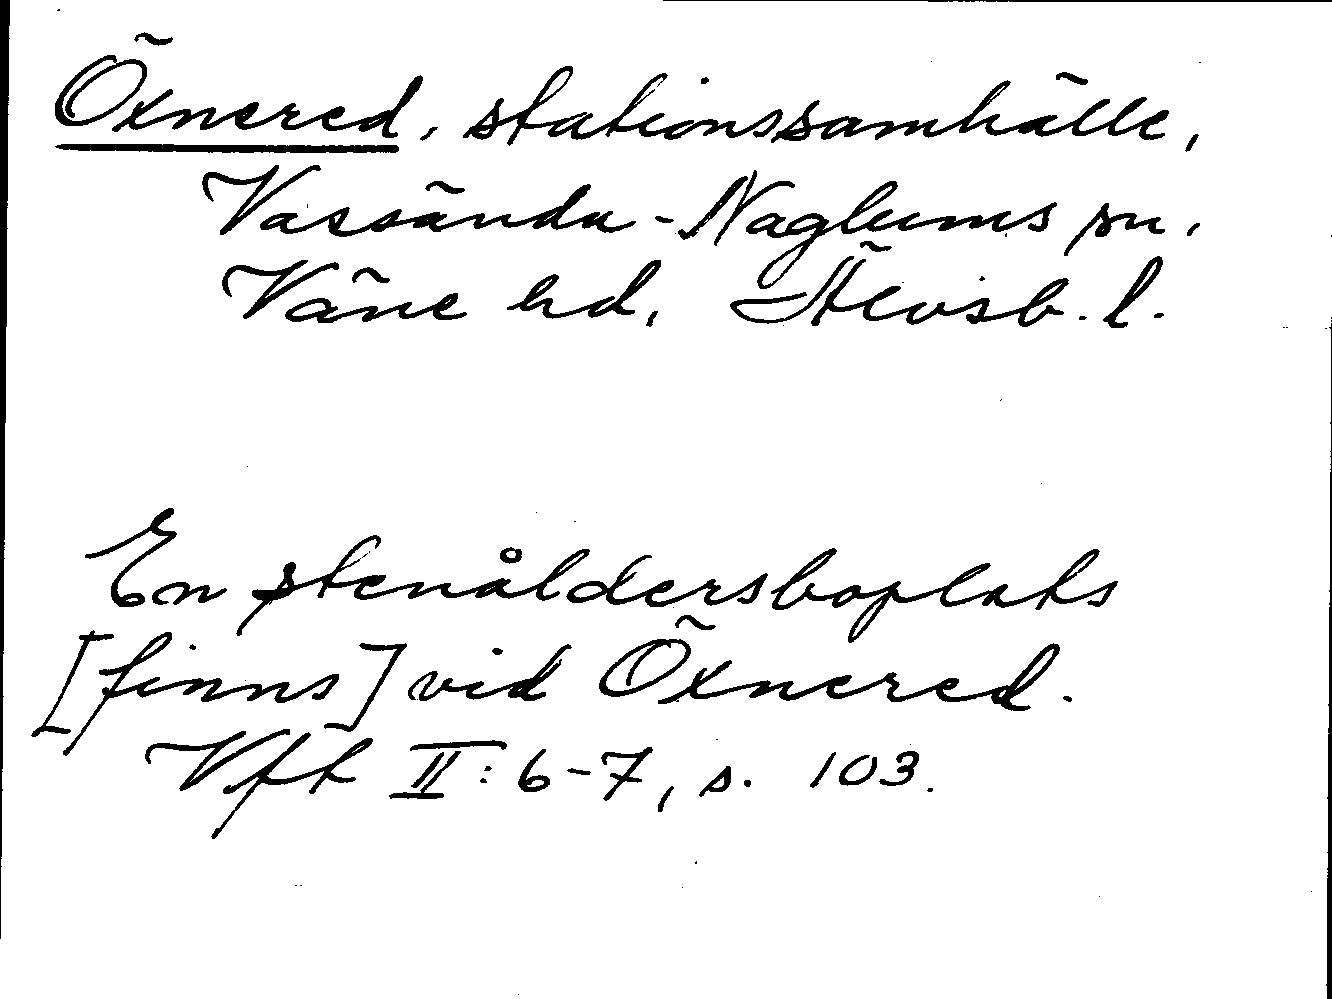 Öxnered, stationssamhälle,
Vassända-Naglums sn.
Väne hd, Älvsb. l.
En stenåldersboplats
[finns] vid Öxnered.
Vft II: 6-7, s. 103.